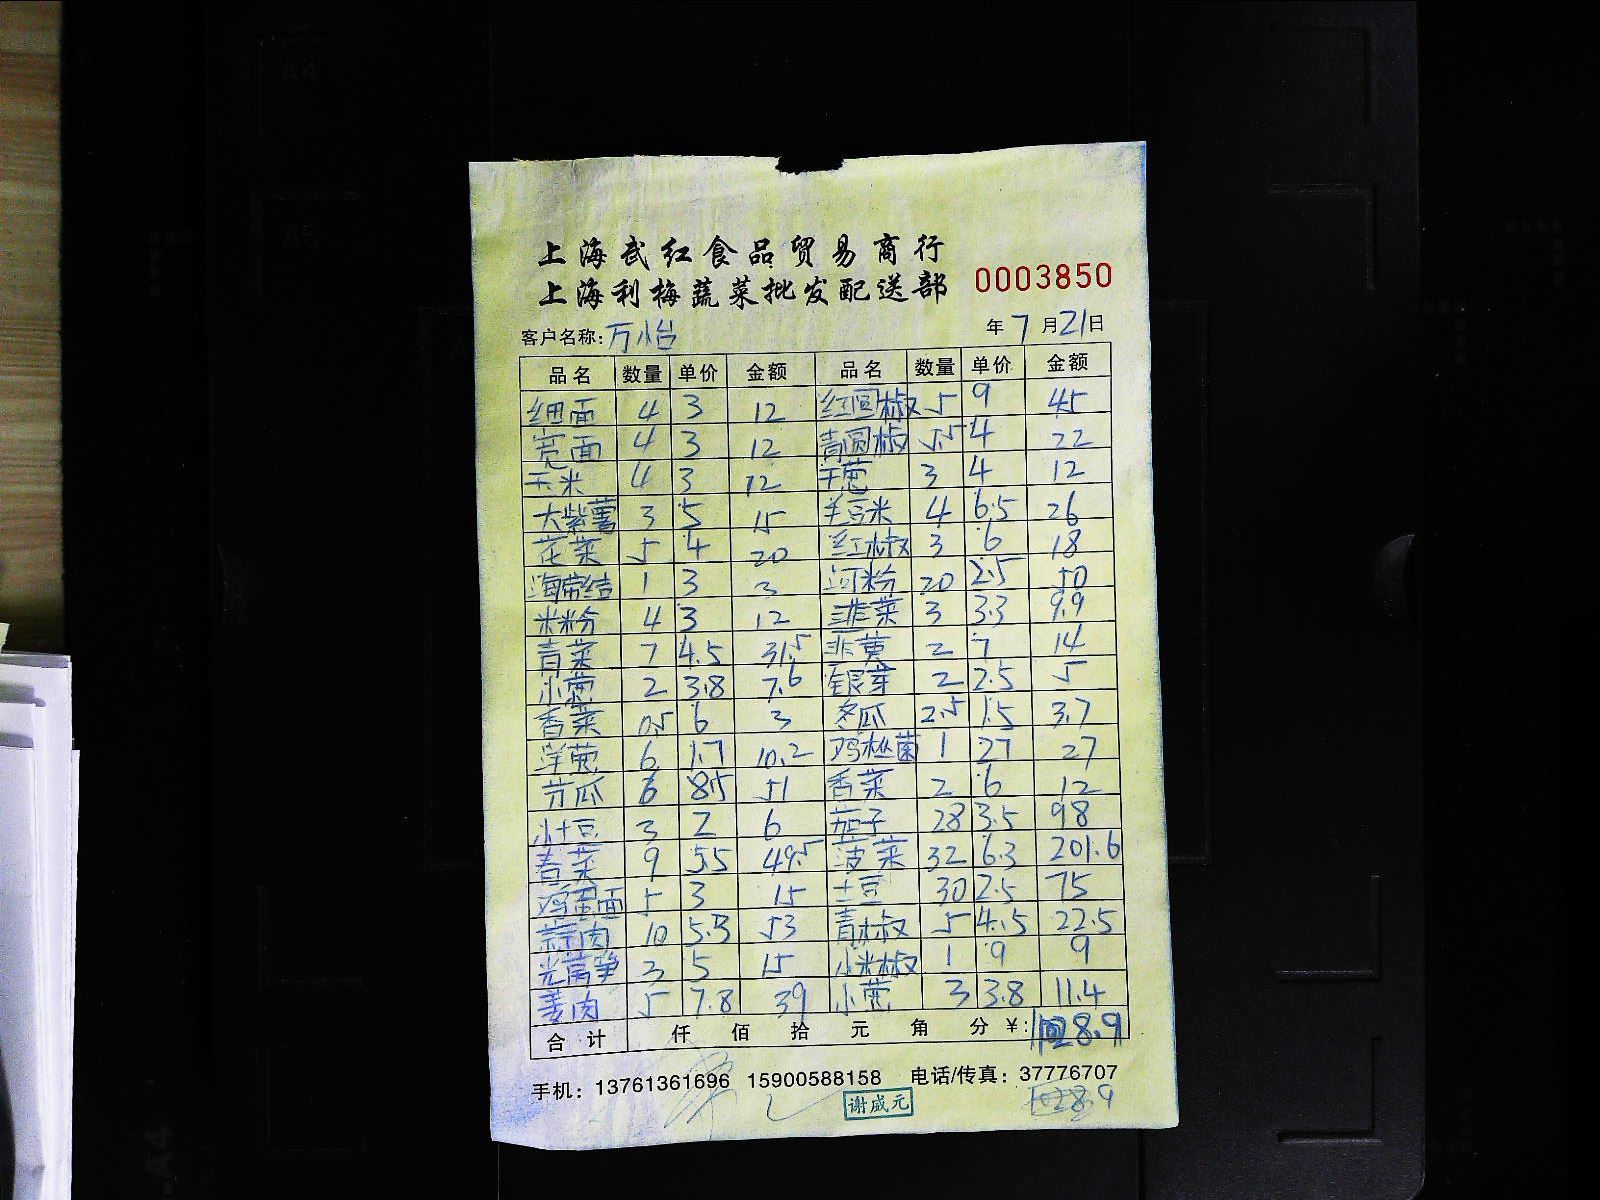 上海武红食品贸易商行
上海利梅蔬菜批发配送部 0003850
客户名称:万怡 年7月21日
品名 数量 单价 金额 品名 数量 单价 金额
细面 4 3 12 红圆椒 5 9 45
宽面 4 3 12 青圆椒 5.5 4 22
玉米 4 3 12 干葱 3 4 12
大紫薯 3 5 15 毛豆米 4 6.5 26
花菜 5 4 20 红椒 3 6 18
海带结 1 3 3 河粉 20 2.5 50
米粉 4 3 12 韭菜 3 3.3 9.9
青菜 7 4.5 31.5 韭黄 2 7 14
小葱 2 3.8 7.6 银芽 2 2.5 5
香菜 0.5 6 3 冬瓜 2.5 1.5 3.7
洋葱 6 1.7 10.2 鸡枞菌 1 27 27
节瓜 6 8.5 51 香菜 2 6 12
小土豆 3 2 6 茄子 28 3.5 98
春菜 9 5.5 49.5 菠菜 32 6.3 201.6
鸡蛋面 5 3 15 土豆 30 2.5 75
蒜肉 10 5.3 53 青椒 5 4.5 22.5
光莴笋 3 5 15 小米椒 1 9 9
姜肉 5 7.8 39 小葱 3 3.8 11.4
合计 仟 佰 拾 元 角 分 ¥: 1028.9
手机: 13761361696 15900588158 电话/传真: 37776707
谢威元 1028.9